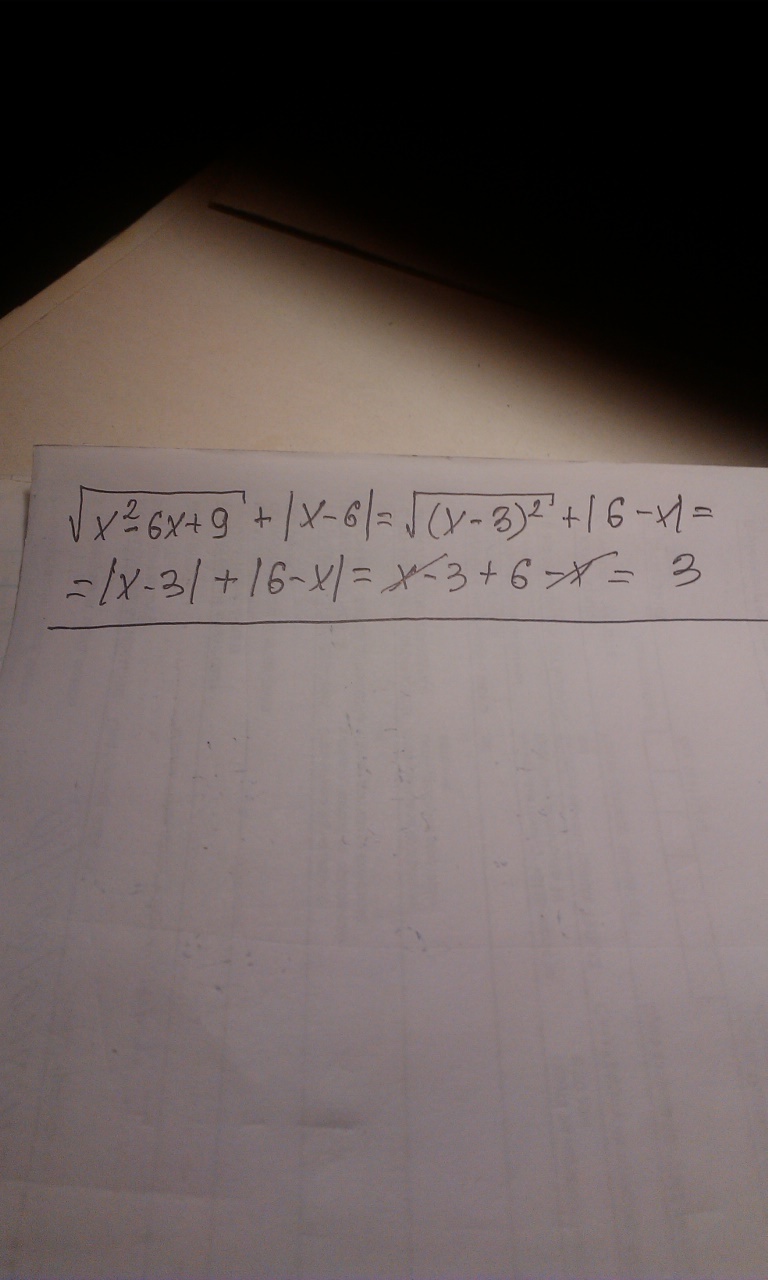 √(x²-6x+9) + |x-6| = √((x-3)²) + |6-x| =
= |x-3| + |6-x| = x-3+6-x = 3